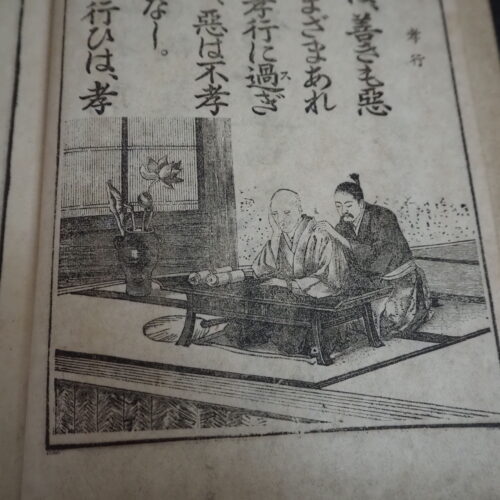 孝行
、善きも惡
まざまあれ
孝行に過ぎ
ス
、惡は不孝
なし。
行ひは、孝